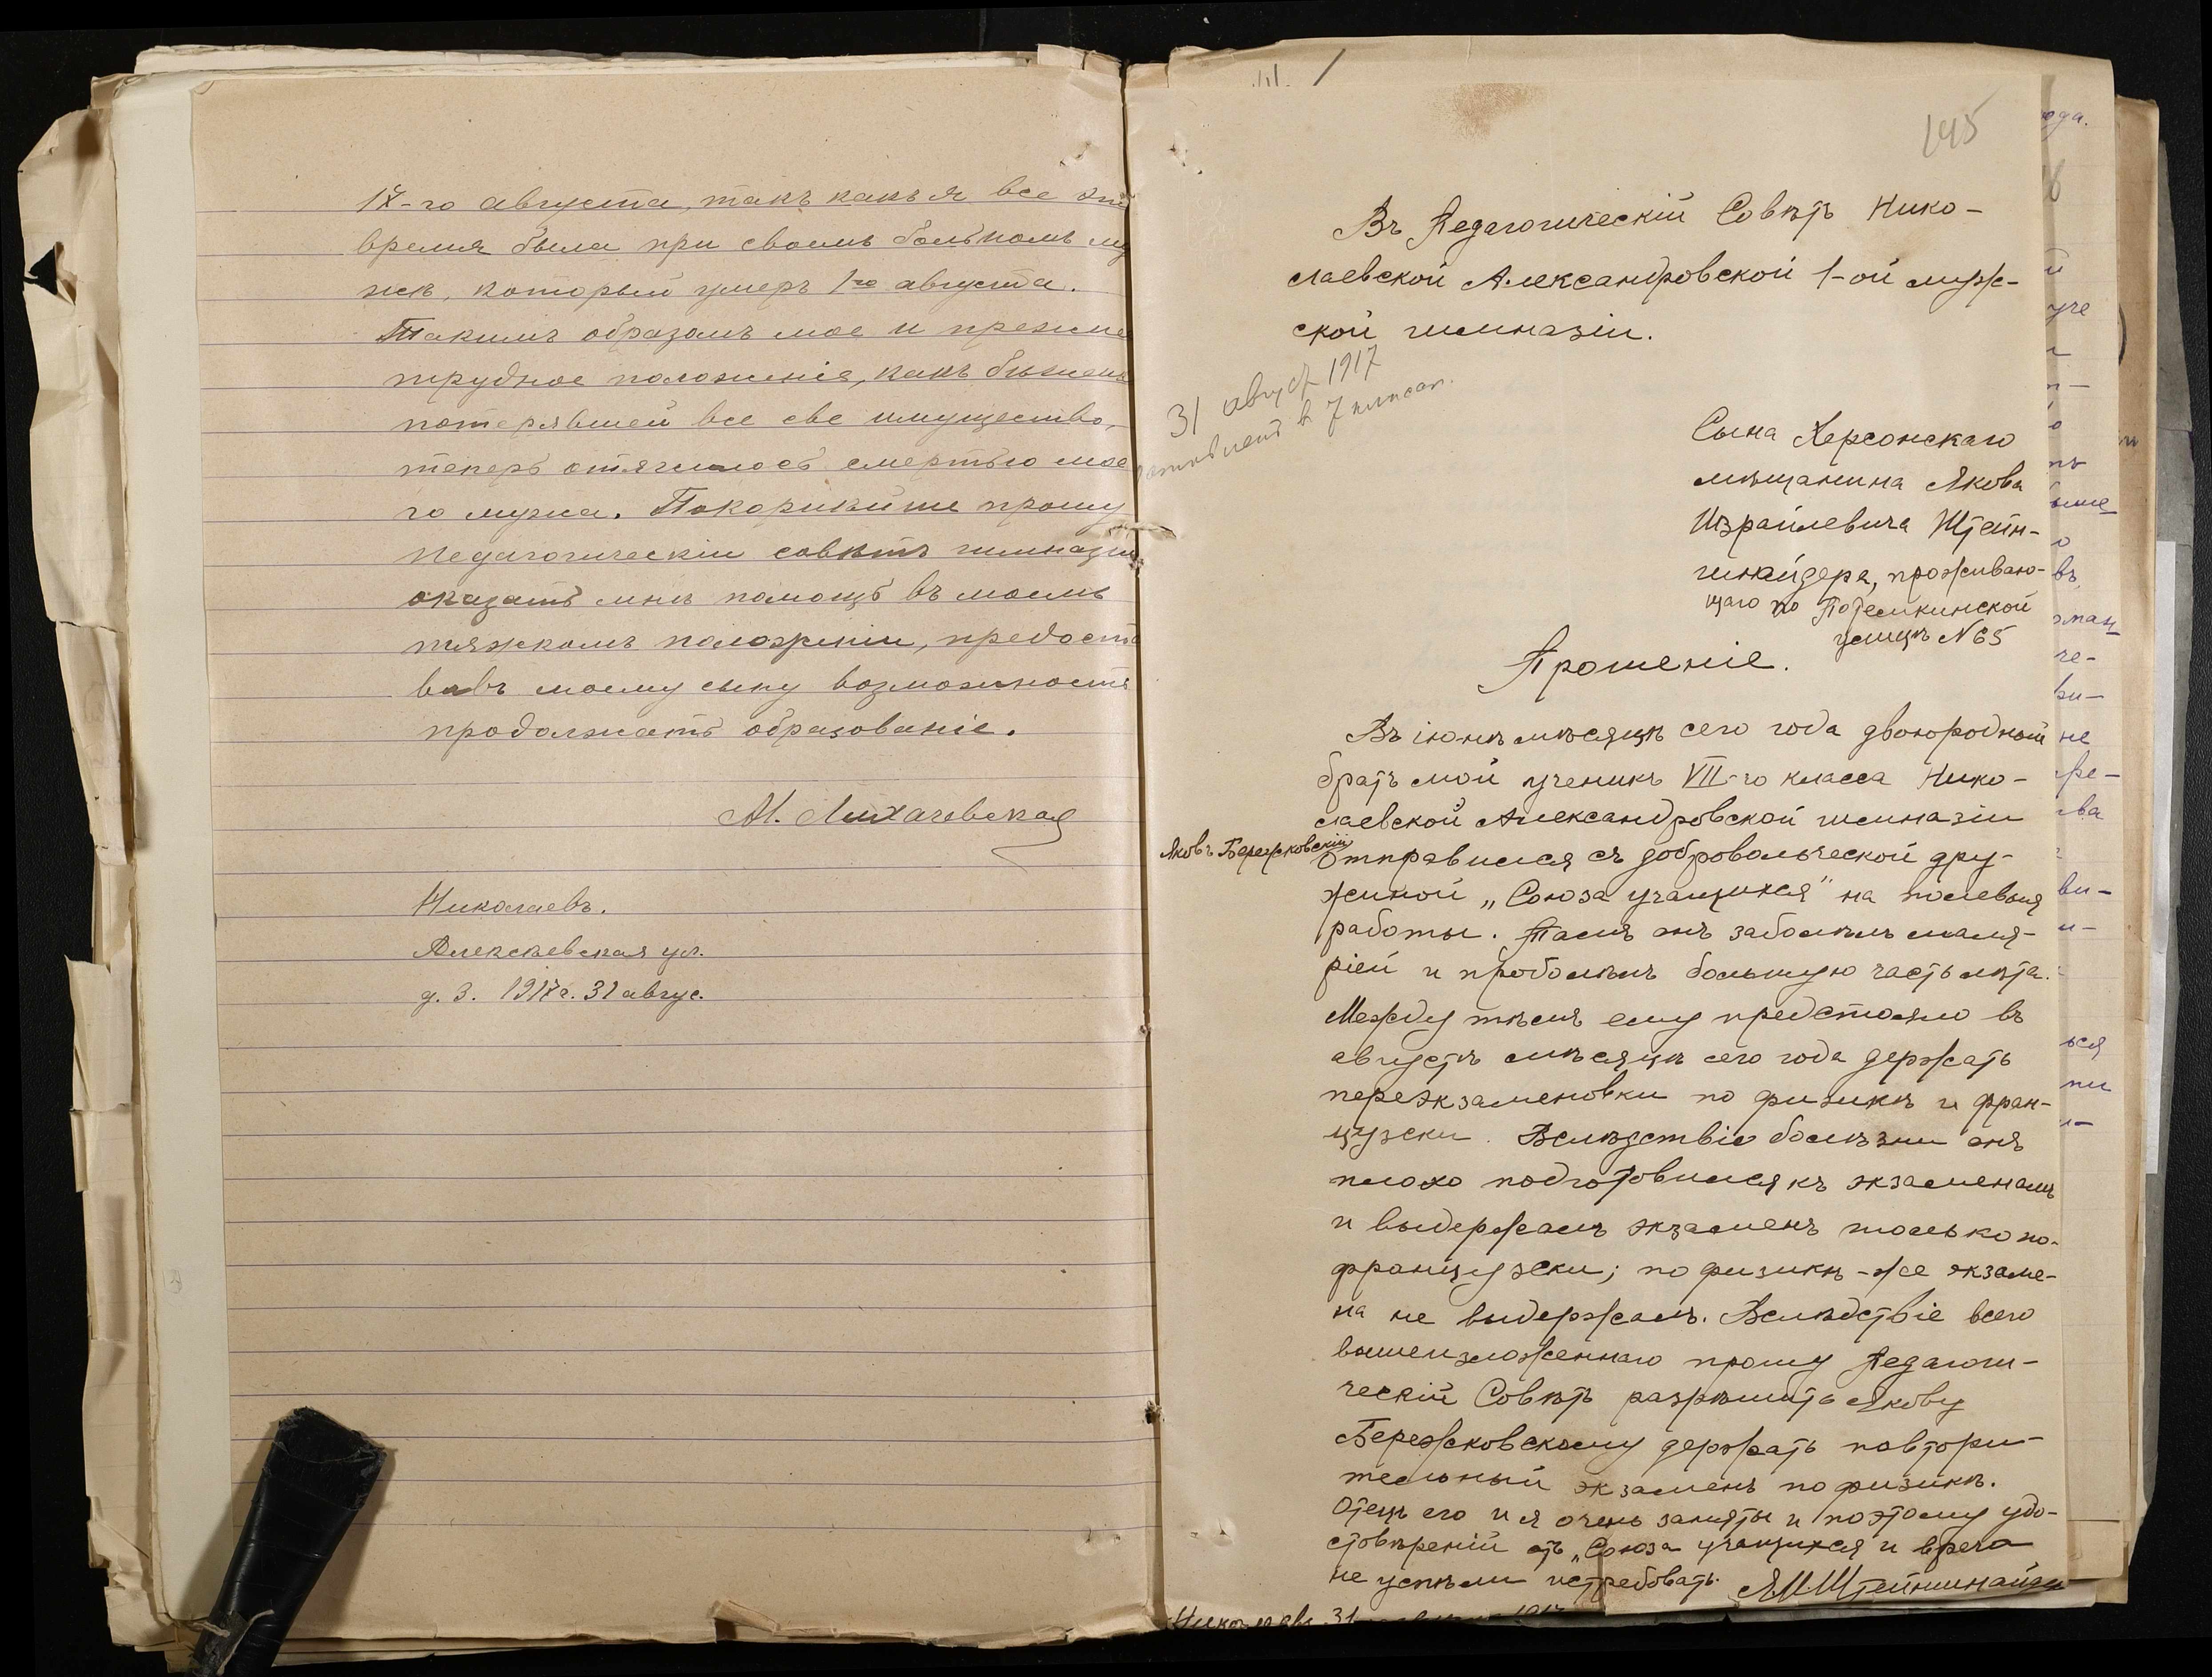 17-го августа, такъ какъ я все эт
время была при своемъ больномъ му
жѣ, который умеръ 1го августа.
Такимъ образомъ мое и прежне
трудное положеніе, какъ бѣжен
потерявшей все свое имущество,
теперь отягчилось смертью мое
го мужа. Покорнѣйше прошу
педагогическій совѣтъ гимназіи
оказать мнѣ помощь въ моемъ
тяжкомъ положеніи, предоста
вивъ моему сыну возможность
продолжать образованіе.
М. Лихачевская
Николаевъ.
Алексѣевская ул.
д. 3. 1917 г. 31 авгус.
145
Въ Педагогическій Совѣтъ Нико-
лаевской Александровской 1-ой муж-
ской гимназіи.
31 август 1917
в 7 классѣ.
Сына Херсонскаго
мѣщанина Якова
Израилевича Штейн-
шнайдера, проживаю-
щаго по Потемкинской
улицѣ № 65
Прошеніе.
Въ іюнѣ мѣсяцѣ сего года двоюродный
братъ мой ученикъ VII-го класса Нико-
лаевской Александровской гимназіи
Яковъ Бережковскій отправился съ добровольческой дру-
жиной „Союза учащихся" на полевыя
работы. Тамъ онъ заболѣлъ маля-
ріей и проболѣлъ большую часть лѣта.
Между тѣмъ ему предстояло въ
августѣ мѣсяцѣ сего года держать
переэкзаменовки по физикѣ и фран-
цузски. Вслѣдствіе болѣзни онъ
плохо подготовился къ экзаменамъ
и выдержалъ экзаменъ только по-
французски; по физикѣ-же экзаме-
на не выдержалъ. Вслѣдствіе всего
вышеизложеннаго прошу Педагоги-
ческій Совѣтъ разрѣшить Якову
Бережковскому держать повтори-
тельный экзаменъ по физикѣ.
Отецъ его и я очень заняты и поэтому удо-
стовѣреній отъ „Союза учащихся" и врача
не успѣли истребовать. Я.И.Штейншнайдер
Николаевъ 31 августа 1917